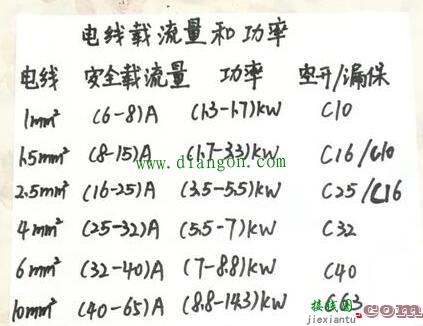 电线载流量和功率
电线 安全载流量 功率 空开/漏保
1mm² (6-8)A (1.3-1.7)kW C10
1.5mm² (8-15)A (1.7-3.3)kW C16/C10
www.diangon.com
2.5mm² (16-25)A (3.5-5.5)kW C25/C16
4mm² (25-32)A (5.5-7)kW C32
6mm² (32-40)A (7-8.8)kW C40
10mm² (40-65)A (8.8-14.3)kW C63
接线图
jiexiantu